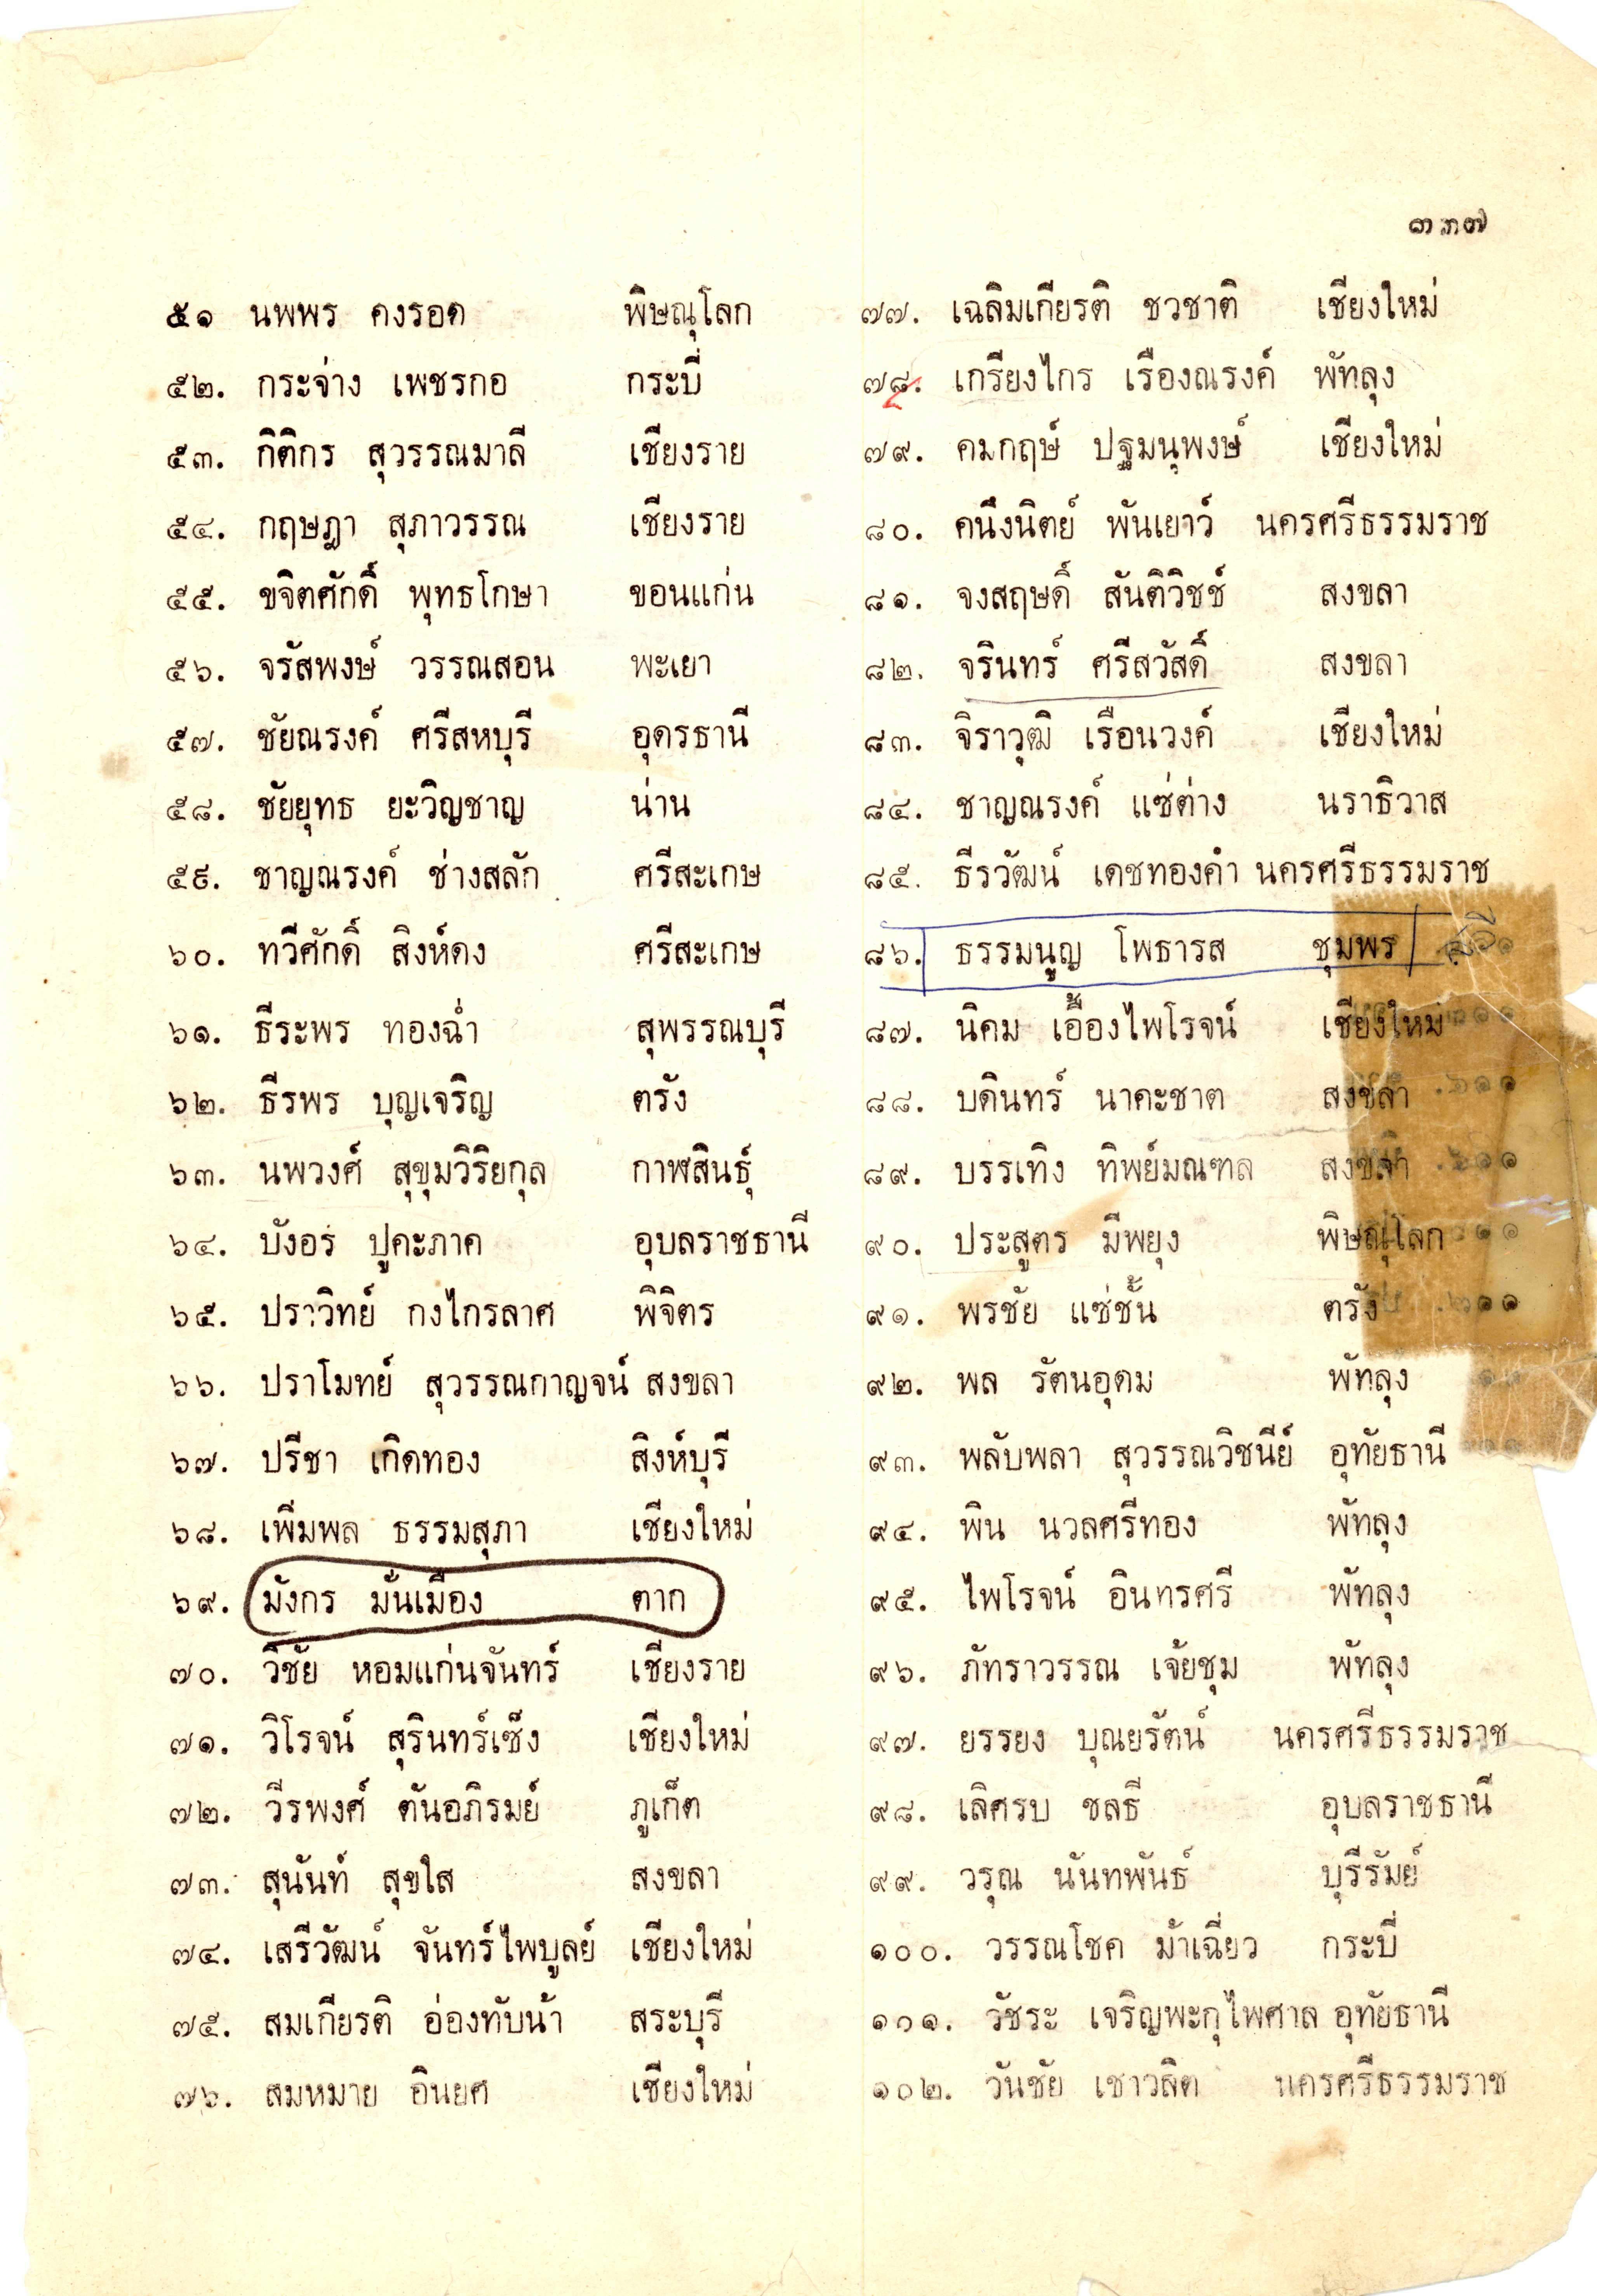 ๓๓๗
๕๑ นพพร คงรอด พิษณุโลก
๕๒. กระจ่าง เพชรกอ กระบี่
๕๓. กิติกร สุวรรณมาลี เชียงราย
๕๔. กฤษฎา สุภาวรรณ เชียงราย
๕๕. ขจิตศักดิ์ พุทธโกษา ขอนแก่น
๕๖. จรัสพงษ์ วรรณสอน พะเยา
๕๗. ชัยณรงค์ ศรีสหบุรี อุดรธานี
๕๘. ชัยยุทธ ยะวิญชาญ น่าน
๕๙. ชาญณรงค์ ช่างสลัก ศรีสะเกษ
๖๐. ทวีศักดิ์ สิงห์ดง ศรีสะเกษ
๖๑. ธีระพร ทองฉ่ำ สุพรรณบุรี
๖๒. ธีรพร บุญเจริญ ตรัง
๖๓. นพวงศ์ สุขุมวิริยกุล กาฬสินธุ์
๖๔. บังอร ปูคะภาค อุบลราชธานี
๖๕. ปราวิทย์ กงไกรลาศ พิจิตร
๖๖. ปราโมทย์ สุวรรณกาญจน์ สงขลา
๖๗. ปรีชา เกิดทอง สิงห์บุรี
๖๘. เพิ่มพล ธรรมสุภา เชียงใหม่
๖๙. มังกร มั่นเมือง ตาก
๗๐. วิชัย หอมแก่นจันทร์ เชียงราย
๗๑. วิโรจน์ สุรินทร์เซ็ง เชียงใหม่
๗๒. วีรพงศ์ ตันอภิรมย์ ภูเก็ต
๗๓. สุนันท์ สุขใส สงขลา
๗๔. เสรีวัฒน์ จันทร์ไพบูลย์ เชียงใหม่
๗๕. สมเกียรติ อ่องทับน้ำ สระบุรี
๗๖. สมหมาย อินยศ เชียงใหม่
๗๗. เฉลิมเกียรติ ชวชาติ เชียงใหม่
๗๘. เกรียงไกร เรืองณรงค์ พัทลุง
๗๙. คมกฤษ์ ปฐมนุพงษ์ เชียงใหม่
๘๐. คนึงนิตย์ พันเยาว์ นครศรีธรรมราช
๘๑. จงสฤษดิ์ สันติวิชช์ สงขลา
๘๒. จรินทร์ ศรีสวัสดิ์ สงขลา
๘๓. จิราวุฒิ เรือนวงค์ เชียงใหม่
๘๔. ชาญณรงค์ แซ่ต่าง นราธิวาส
๘๕. ธีรวัฒน์ เดชทองคำ นครศรีธรรมราช
๘๖. ธรรมนูญ โพธารส ชุมพร
๘๗. นิคม เอื้องไพโรจน์ เชียงใหม่
๘๘. บดินทร์ นาคะชาต สงขลา
๘๙. บรรเทิง ทิพย์มณฑล สงขลา
๙๐. ประสูตร มีพยุง พิษณุโลก
๙๑. พรชัย แซ่ชั้น ตรัง
๙๒. พล รัตนอุดม พัทลุง
๙๓. พลับพลา สุวรรณวิชนีย์ อุทัยธานี
๙๔. พิน นวลศรีทอง พัทลุง
๙๕. ไพโรจน์ อินทรศรี พัทลุง
๙๖. ภัทราวรรณ เจ้ยชุม พัทลุง
๙๗. ยรรยง บุณยรัตน์ นครศรีธรรมราช
๙๘. เลิศรบ ชลธี อุบลราชธานี
๙๙. วรุณ นันทพันธ์ บุรีรัมย์
๑๐๐. วรรณโชค ม้าเฉี่ยว กระบี่
๑๐๑. วัชระ เจริญพะกุไพศาล อุทัยธานี
๑๐๒. วันชัย เชาวลิต นครศรีธรรมราช